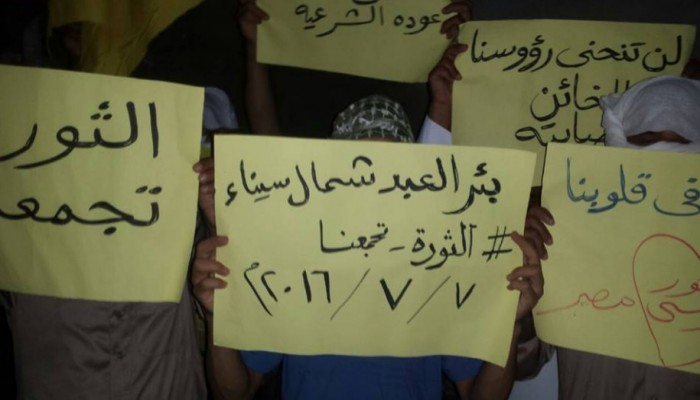 عوده الشرعيه
لن تنحنى رؤوسنا
الخائن
الثور
تجمع
بئر العبد شمال سيناء
# الثورة - تجمعنا
٧ / ٧ / ٢٠١٦م
فى قلوبنا
مصر